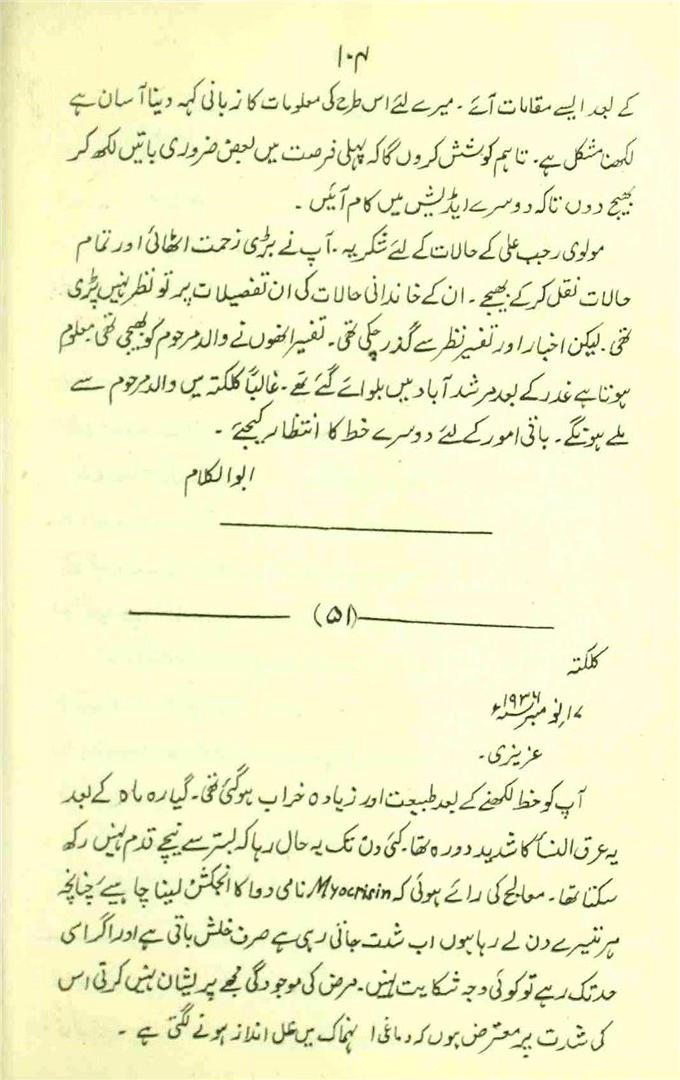 ۱۰۴
کے بعد ایسے مقامات آئے ۔ میرے لئے اس طرح کی معلومات کا زبانی کہہ دینا آسان ہے
لکھنا مشکل ہے۔ تاہم کوشش کروں گا کہ پہلی فرصت میں بعض ضروری باتیں لکھ کر
بھیج دوں تاکہ دوسرے ایڈیشن میں کام آئیں ۔
مولوی رجب علی کے حالات کے لئے شکریہ ۔ آپ نے بڑی زحمت اٹھائی اور تمام
حالات نقل کر کے بھیجے ۔ ان کے خاندانی حالات کی ان تفصیلات پر تو نظر نہیں پڑی
تھی ۔ لیکن اخبار اور تفسیر نظر سے گذر چکی تھی ۔ تفسیر انھوں نے والد مرحوم کو بھیجی تھی معلوم
ہوتا ہے غدر کے بعد مرشد آباد میں بلوائے گئے تھے ۔ غالباً کلکتہ میں والد مرحوم سے
ملے ہونگے ۔ باقی امور کے لئے دوسرے خط کا انتظار کیجئے ۔
ابوالکلام
(۵۱)
کلکتہ
۱۷ نومبر ۱۹۳۶ء
عزیزی ۔
آپ کو خط لکھنے کے بعد طبیعت اور زیادہ خراب ہو گئی تھی ۔ گیارہ ماہ کے بعد
یہ عرق النسأ کا شدید دورہ تھا ۔ کئی دن تک یہ حال رہا کہ بستر سے نیچے قدم نہیں رکھ
سکتا تھا ۔ معالج کی رائے ہوئی کہ Myocrisin نامی دوا کا انجکشن لینا چاہیے چنانچہ
ہر تیسرے دن لے رہا ہوں اب شدت جاتی رہی ہے صرف خلش باقی ہے اور اگر اسی
حد تک رہے تو کوئی وجہ شکایت نہیں ۔ مرض کی موجودگی مجھے پریشان نہیں کرتی اس
کی شدت پر معترض ہوں کہ دماغی انہماک میں خلل انداز ہونے لگتی ہے ۔